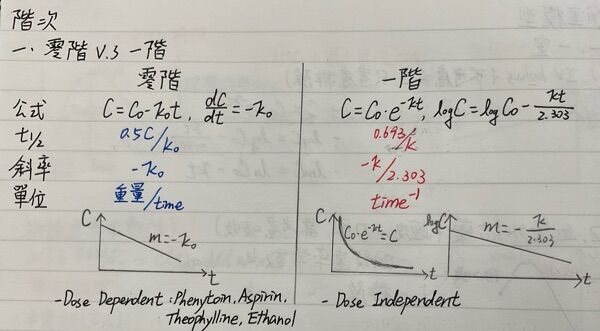 階次
一. 零階 V.S 一階
零階 一階
公式 C=C₀-k₀t, dC/dt=-k₀ C=C₀·e^-kt, logC=logC₀-kt/2.303
t1/2 0.5C/k₀ 0.693/k
斜率 -k₀ -k/2.303
單位 重量/time time⁻¹
C m=-k₀ t
C C₀·e^-kt=C t
logC m=-k/2.303 t
-Dose Dependent:Phenytoin, Aspirin,
Theophylline, Ethanol
- Dose Independent